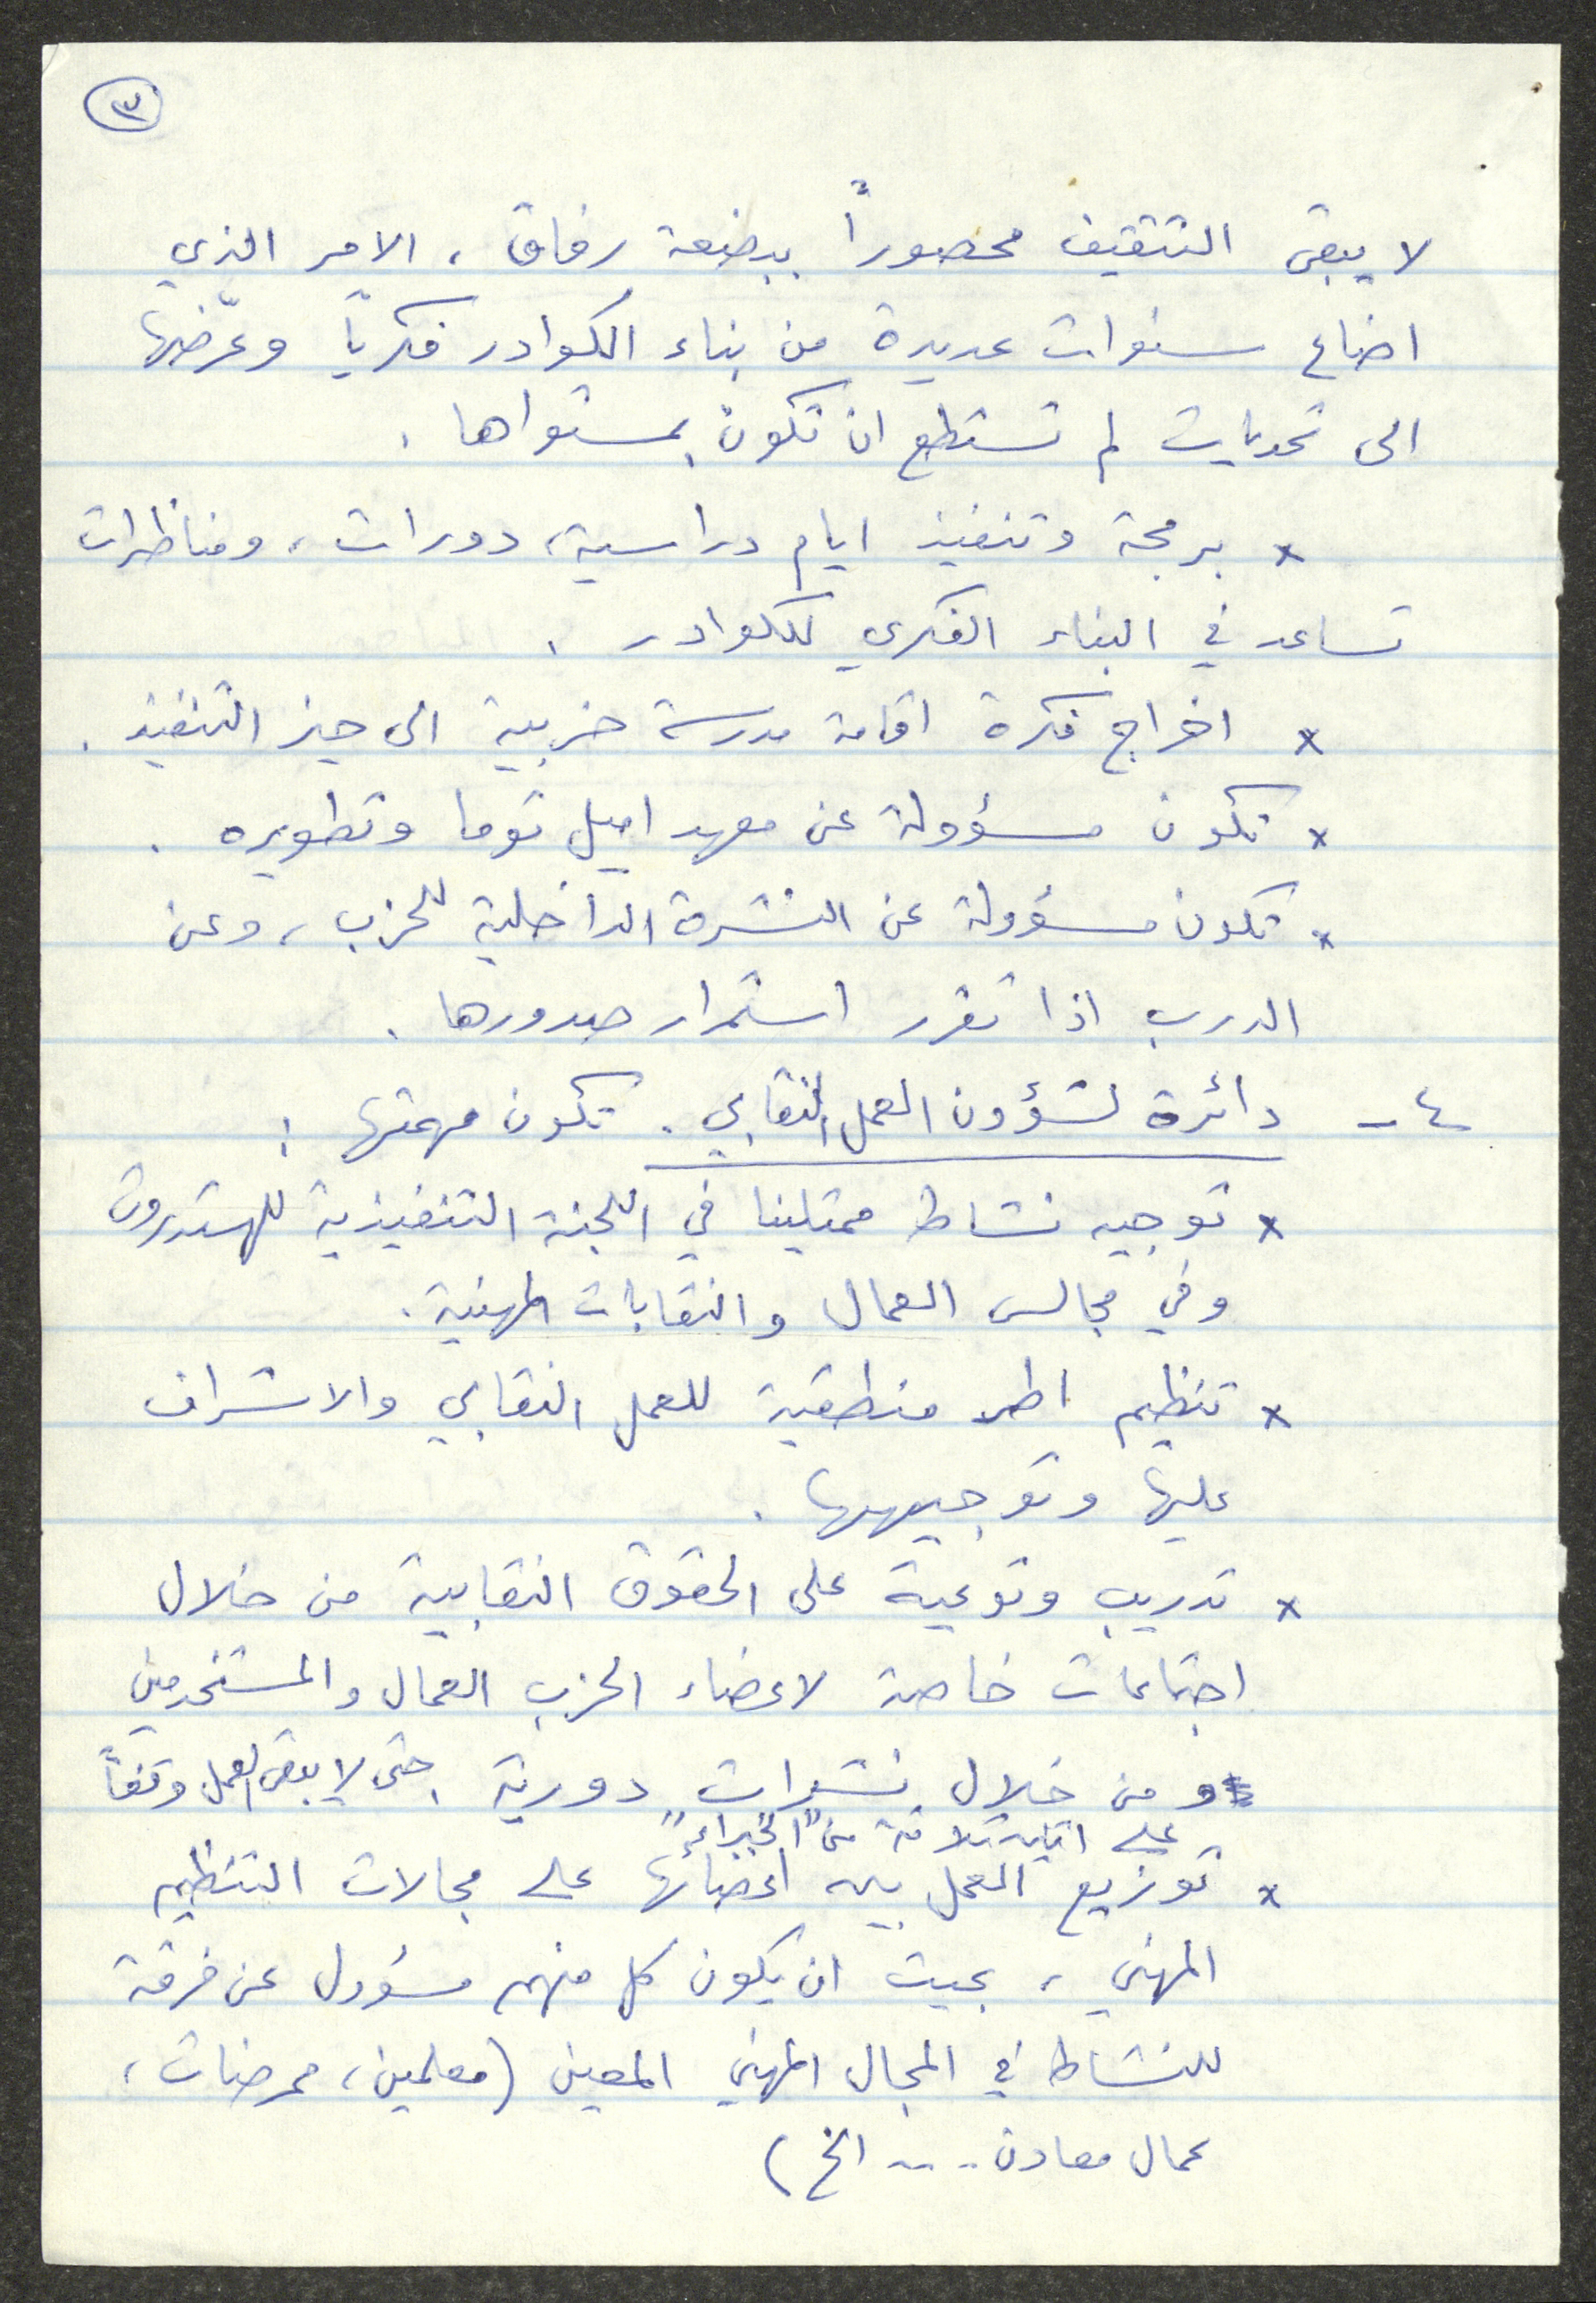 ٣
لا يبقى التثقيف محصوراً ببضعة رفاق، الامر الذي
اضاع سنوات عديدة من بناء الكوادر فكرياً وعرّضها
الى تحديات لم تستطع ان تكون بمستواها.
* برمجة وتنفيذ ايام دراسية، دورات، ومناظرات
تساعد في البناء الفكري للكوادر.
* اخراج فكرة اقامة مدرسة حزبية الى حيز التنفيذ.
* تكون مسؤولة عن معهد اميل توما وتطويره.
* تكون مسؤولة عن النشرة الداخلية للحزب، وعن
الدرب اذا تقرر استمرار صدورها.
٤- دائرة لشؤون العمل النقابي. تكون مهمتها:
* توجيه نشاط ممثلينا في اللجنة التنفيذية للهستدروت
وفي مجالس العمال والنقابات المهنية.
* تنظيم اطر منطقية للعمل النقابي والاشراف
عليها وتوجيهها.
* تدريب وتوعية على الحقوق النقابية من خلال
اجتماعات خاصة لاعضاء الحزب العمال والمستخدمين
ومن خلال نشرات دورية. حتى لا يبقى العمل وقفاً
على اثنين ثلاثة من "الخبراء"
* توزيع العمل بين اعضائها على مجالات التنظيم
المهني، بحيث ان يكون كل منهم مسؤول عن فرقة
للنشاط في المجال المهني المعين (معلمين، ممرضات،
عمال معادن.... الخ)